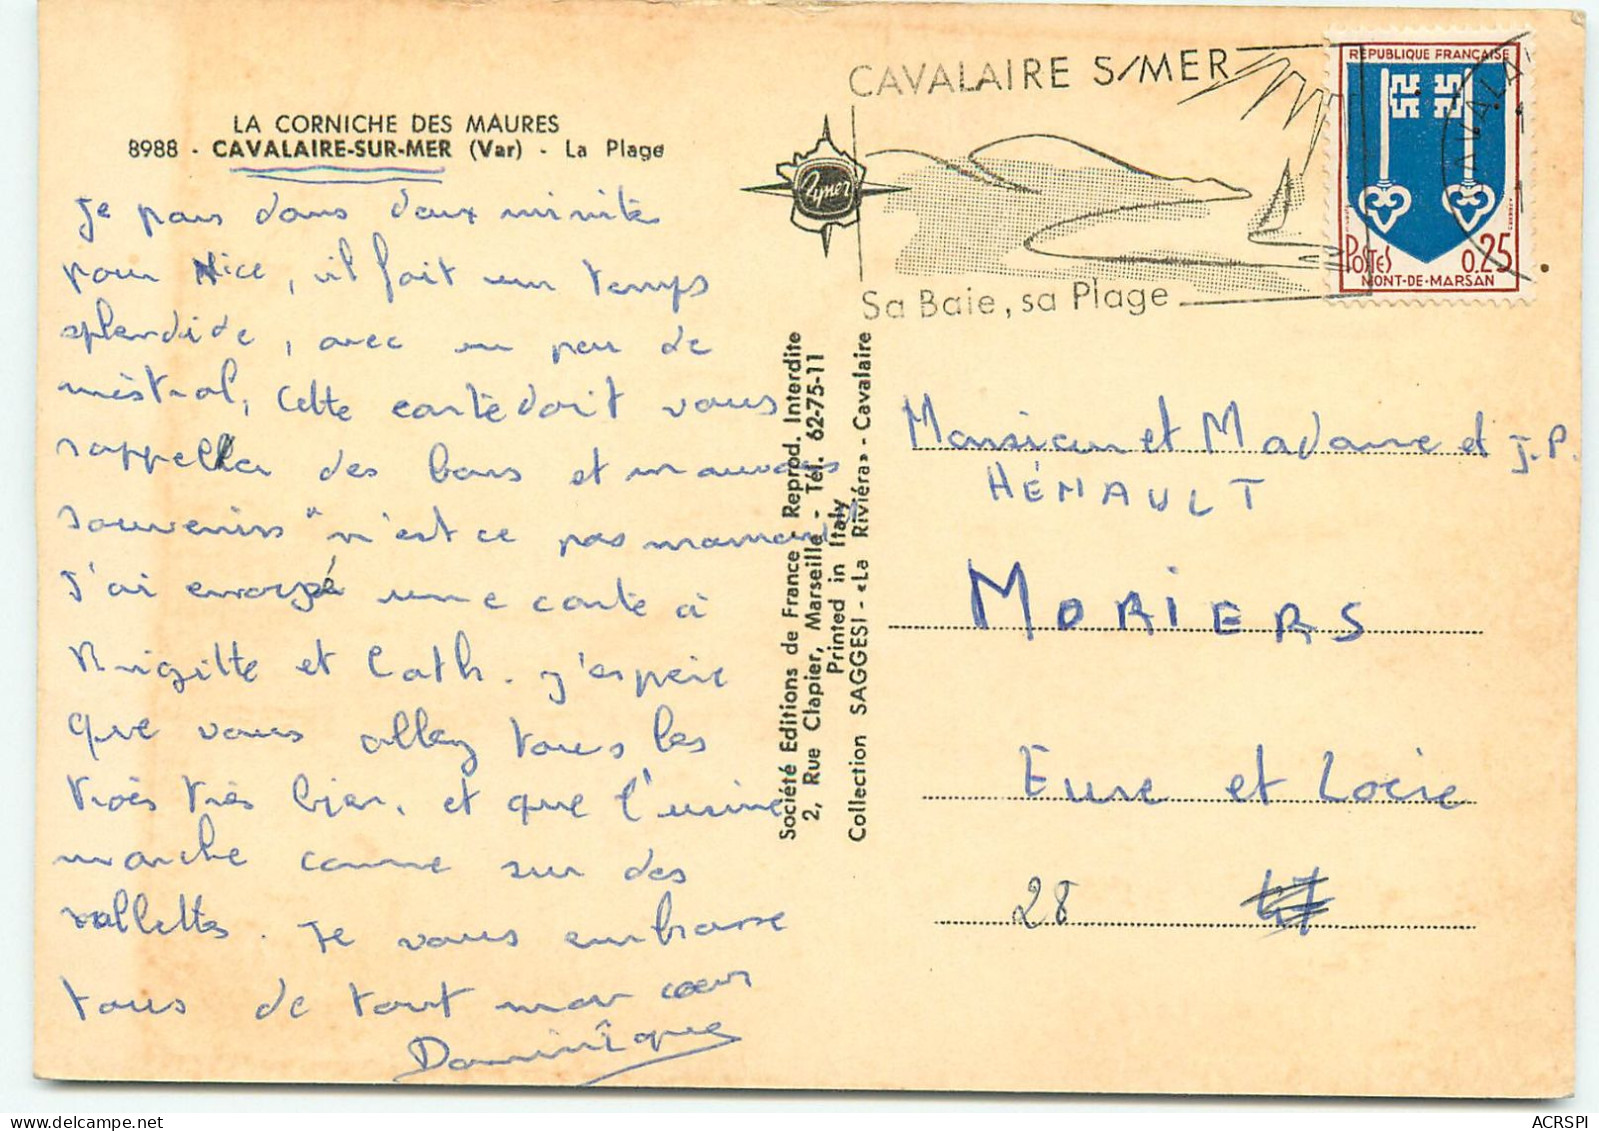 LA CORNICHE DES MAURES
8988 - CAVALAIRE-SUR-MER (Var) - La Plage
Je pars dans deux minutes
pour Nice, il fait un temps
splendide, avec un peu de
mistral, cette carte doit vous
rappeller des bons et mauvais
souvenirs "n'est ce pas maman"
J'ai envoyé une carte à
Brigitte et Cath. j'espère
que vous allez tous les
trois très bien, et que l'usine
marche comme sur des
rollettes. Je vous embrasse
tous de tout mon cœur
Dominique
Ryner
Société Editions de France - Reprod. Interdite
2, Rue Clapier, Marseille - Tél. 62-75-11
Printed in Italy
Collection SAGGESI - «La Riviéra» - Cavalaire
CAVALAIRE S/MER
Sa Baie, sa Plage
CAVALA
REPUBLIQUE FRANÇAISE
POSTES 0.25
MONT-DE-MARSAN
Monsieur et Madame et J.P.
HÉNAULT
MORIERS
Eure et Loire
28
ACRSPI